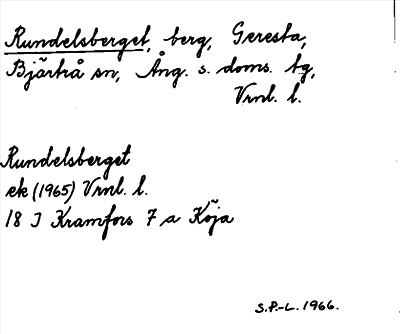 Rundelsberget, berg, Geresta,
Bjärtrå sn, Ång. s. doms. tg,
Vrnl. l.
Rundelsberget
ek (1965) Vrnl. l.
18 I Kramfors 7 a Köja
S.P.-L. 1966.